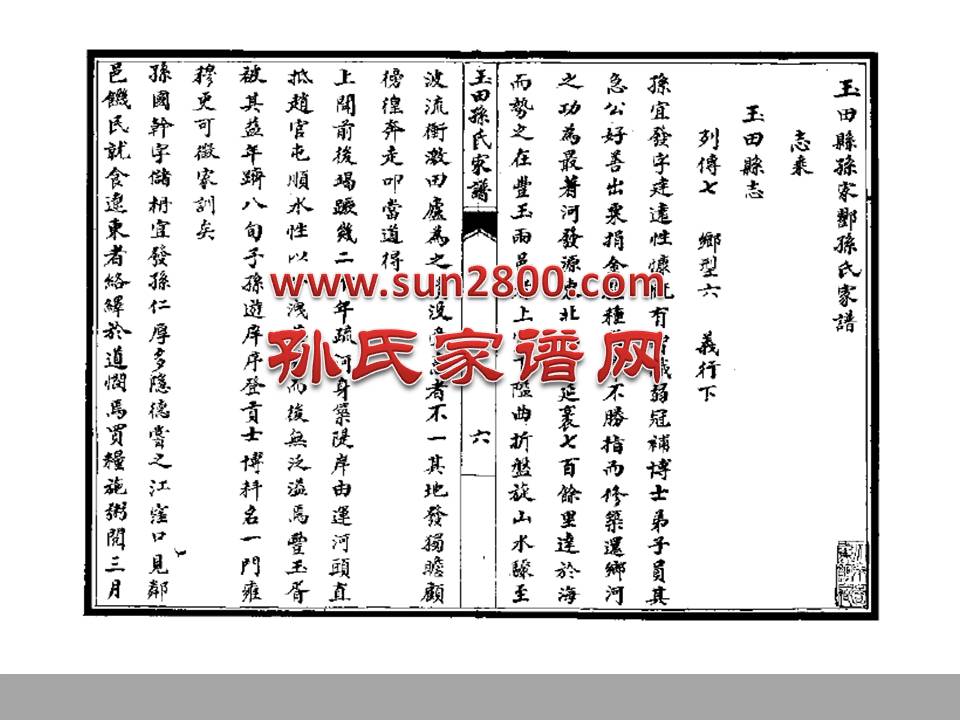 玉田縣孫家鄽孫氏家譜
志乘
玉田縣志
列傳七 鄉型六 義行下
孫宜發字建遠性慷有識弱冠補博士弟子員其
急公好善出粟捐金種不勝指而修築還鄉河
之功為最著河發源北延袤七百餘里達於海
而勢之在豐玉兩邑上下隘曲折盤旋山水驟至
玉田孫氏家譜
六
波流衝激田廬為之沒者不一其地發獨瞻顧
徬徨奔走叩當道得
上聞前後竭蹶幾二年疏河身築隄岸由運河頭直
抵趙官屯順水性以洩而後無泛溢焉豐玉胥
被其益年躋八旬子孫遊庠序登貢士博科名一門雍
穆更可徵家訓矣
孫國幹字儲枬宜發孫仁厚多隱德嘗之江窪口見鄰
邑饑民就食遼東者絡繹於道憫焉買糧施粥閱三月
www.sun2800.com
孙氏家谱网